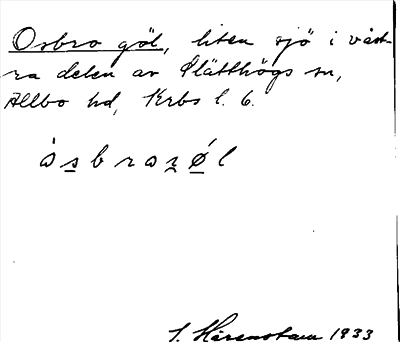 Osbro göl, liten sjö i väst-
ra delen av Slätthögs sn,
Allbo hd, Krbs l. 6.
òsbraʒøl
S. 1933